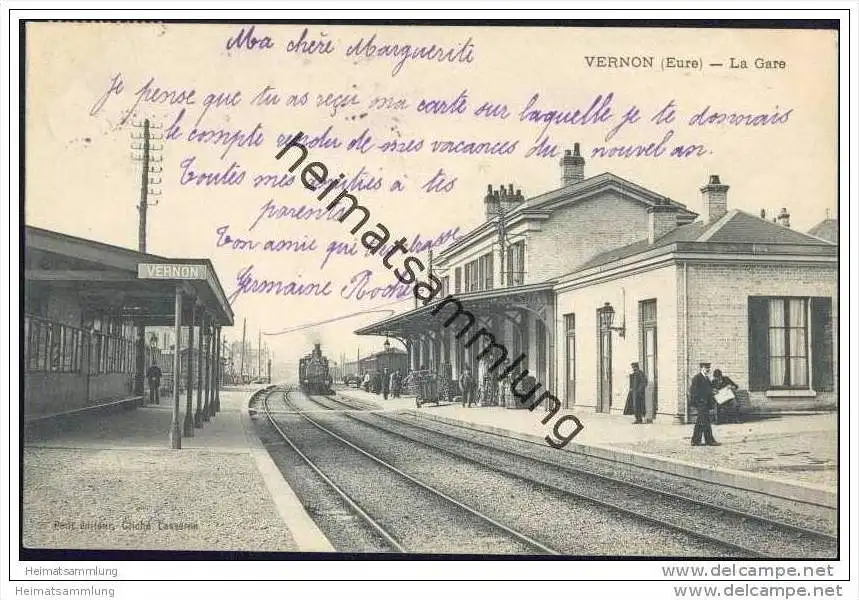 Ma chère Marguerite
VERNON (Eure) — La Gare
Je pense que tu as reçu ma carte sur laquelle je te donnais
le compte rendu de mes vacances du nouvel an.
Toutes mes amitiés à tes
parents
Ton amie qui t'embrasse
Germaine
VERNON
heimatsammlung.de
Petit éditeur, Cliché
Heimatsammlung
Heimatsammlung
www.delcampe.net
www.delcampe.net